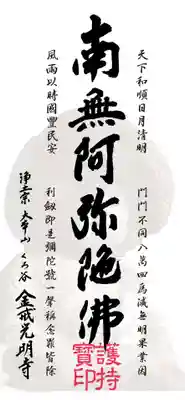 天下和順日月清明
門門不同八萬四爲滅無明果業因
南無阿弥陀佛
護持
寶印
利劔即是彌陀號一聲称念罪皆除
風雨以時國豊民安
浄土宗 大本山 くろ谷 金戒光明寺